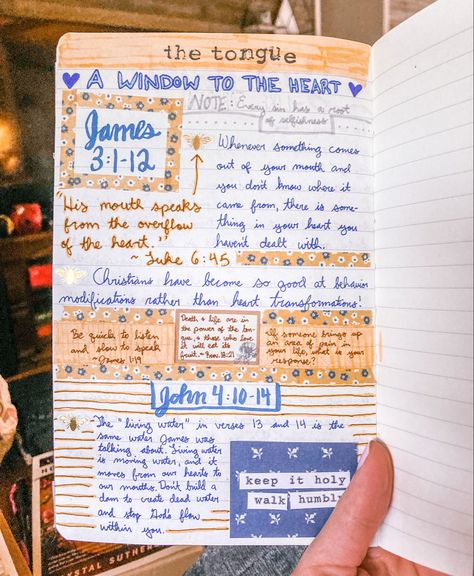 the tongue
A WINDOW TO THE HEART
NOTE: Every sin has a root
of selfishness
James
3:1-12
Whenever something comes
out of your mouth and
you don't know where it
came from, there is some-
thing in your heart you
haven't dealt with.
"His mouth speaks
from the overflow
of the heart."
~ Luke 6:45
Christians have become so good at behavior
modifications rather than heart transformations!
Be quick to listen
and slow to speak
~James 1:19
Death & life are in
the power of the ton-
gue, & those who love
it will eat its
fruit. ~ Prov. 18:21
If someone brings up
an area of pain in
your life, what is your
response?
John 4:10-14
The "living water" in verses 13 and 14 is the
same water James was
talking about. Living water
is moving water, and it
moves from our hearts to
our mouths. Don't build a
dam to create dead water
and stop God's flow
within you.
keep it holy
walk humbly
YSTAL SUTHER